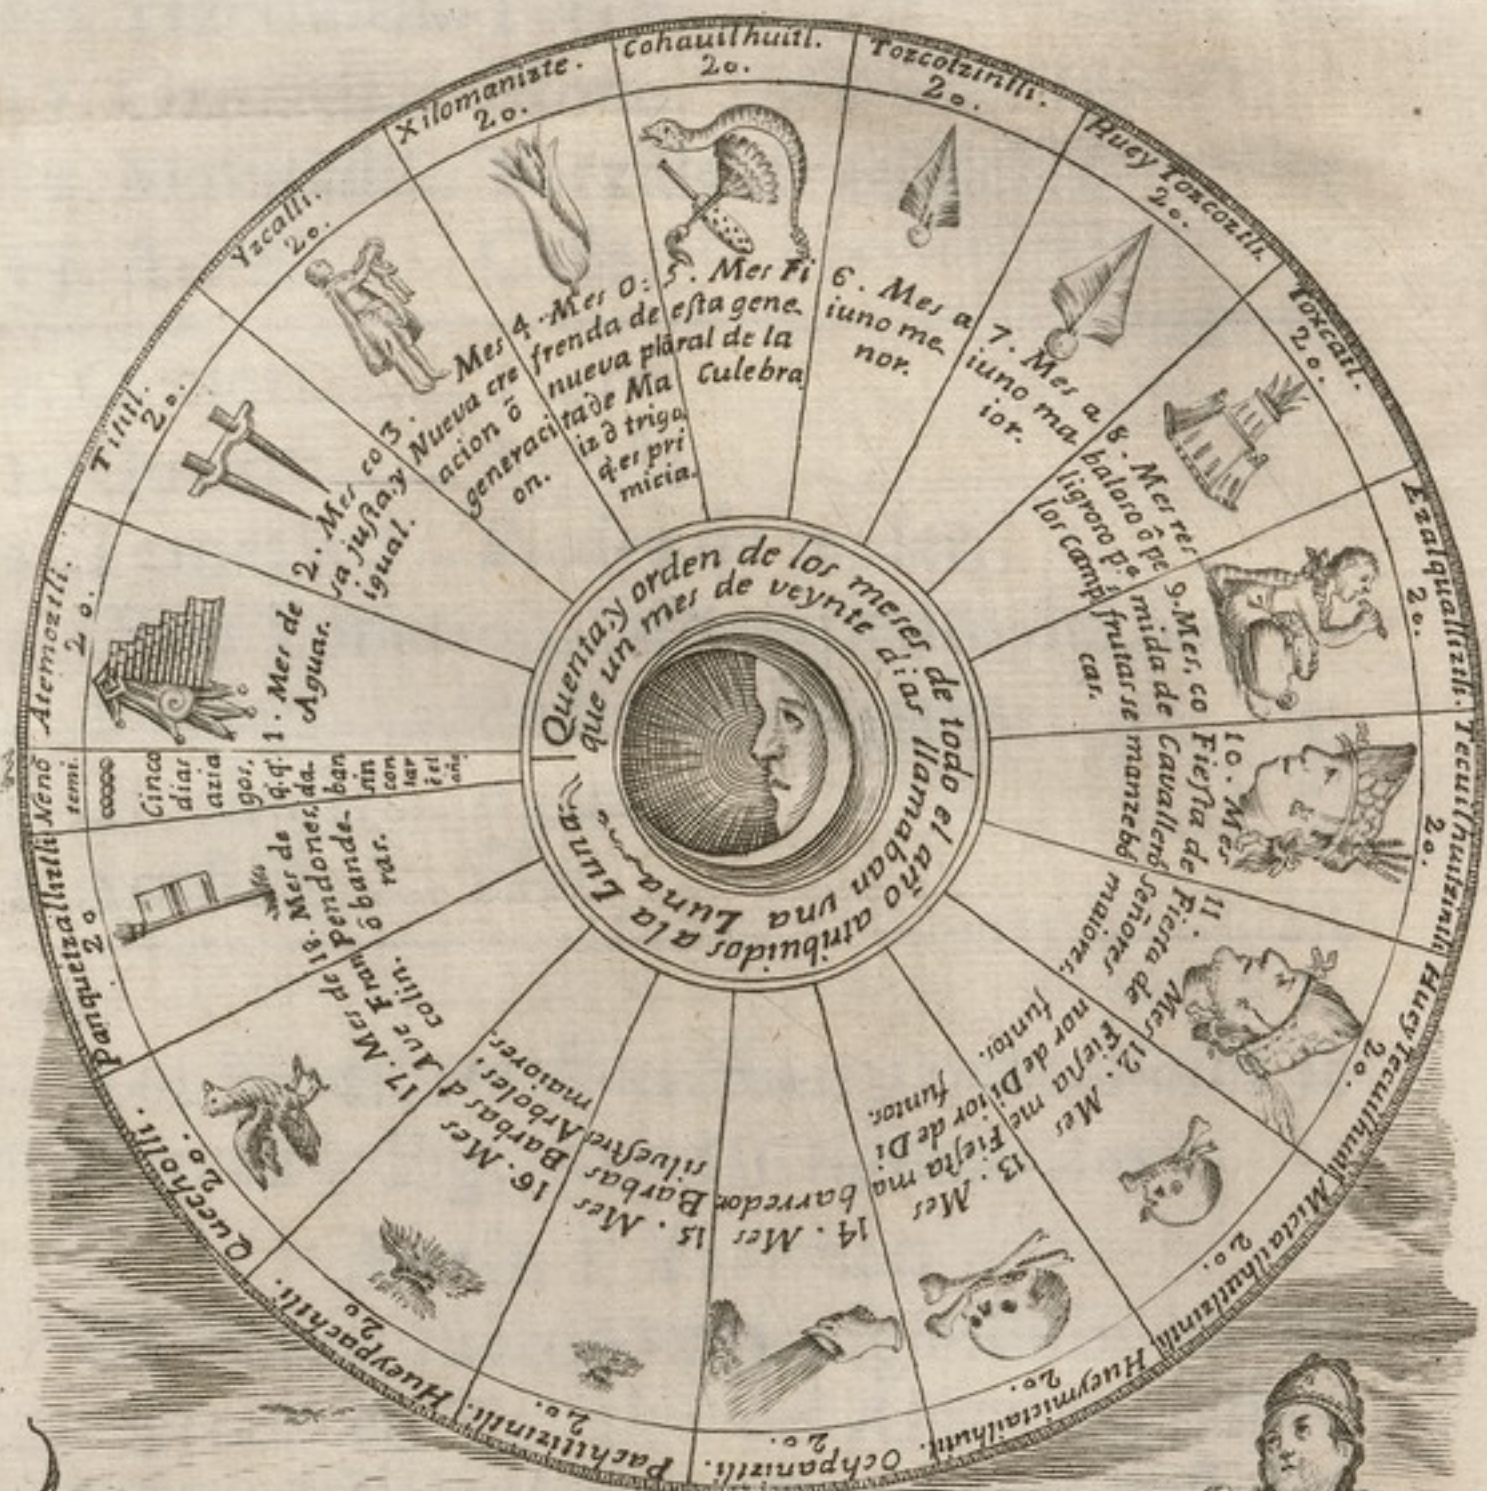 Quenta, y orden de los meses de todo el año atribuidos a la Luna
que un mes de veynte dias llamaban una Luna
Atemoztli.
20.
1. Mes de
Aguas.
Tititl.
20.
2. Mes co
sa justa, y
igual.
Yzcalli.
20.
3. Mes
Nueva cre
acion õ
generaci
on.
Xilomanizte.
20.
4. Mes O:
frenda de
nueva plã
ta de Ma
iz õ trigo
q̃ es pri
micia.
Cohauilhuitl.
20.
5. Mes Fi
esta gene
ral de la
Culebra
Tozcotzintli.
20.
6. Mes a
iuno me
nor.
Huey Tozcoztli.
20.
7. Mes a
iuno ma
ior.
Toxcatl.
20.
8. Mes res
baloso õ pe
ligroso p.ª
los Camp.s
Ezalqualliztli.
20.
9. Mes, co
mida de
frutas se
cas.
Tecuilhuitzintli
20.
10. Mes
Fiesta de
Cavallerõ
manzebõ
Huey Tecuilhuitl
20.
11. Mes
Fiesta de
Señores
maiores.
Mictailhuitlzintli
20.
12. Mes
Fiesta me
nor de Di
funtos.
Hueymictailhuitl.
20.
13. Mes
Fiesta ma
ior de Di
funtos.
Ochpaniztli.
20.
14. Mes
barredor
Pachtitzintli.
20.
15 Mes
Barbas
silvestre
Hueypachtli.
20
16. Mes
Barbas đ
Arboles,
maiores.
Quecholli.
20.
17. Mes de
Ave Fran
colin.
Panquetzalliztli
20
18. Mes de
pendones,
õ bande-
ras.
Nenõ
temi.
Cinco
dias
azia
gos,
q̃.q̃.
da-
ban
sin
con
tar
ẽ el
año